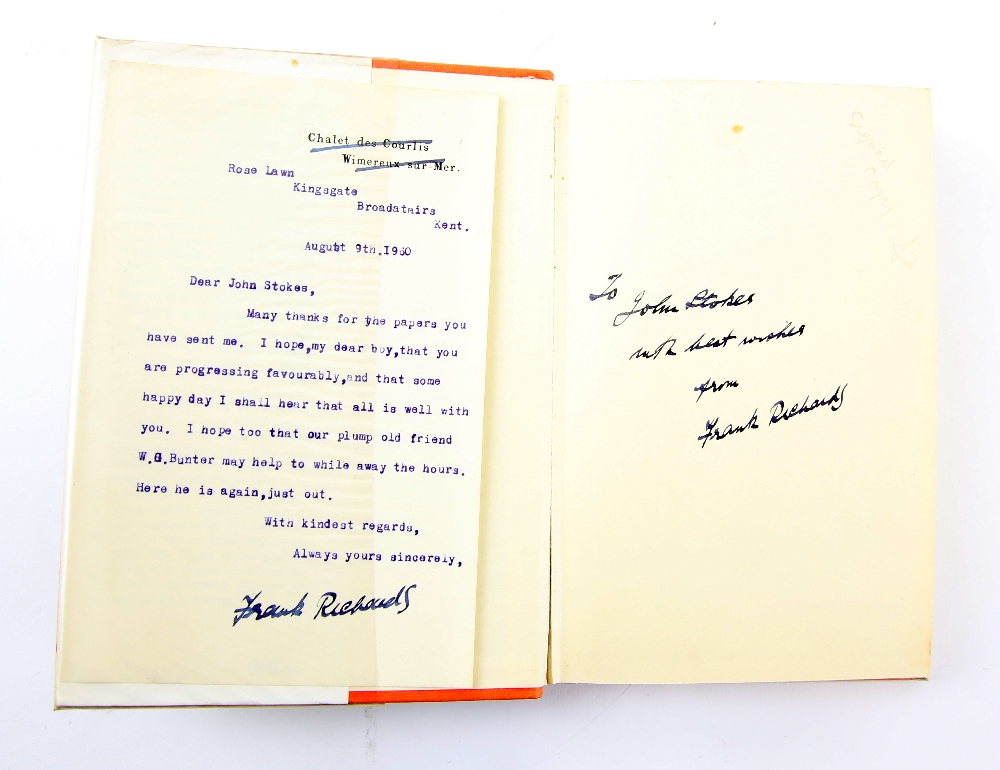 Chalet des Courlis
Wimereux sur Mer.
Rose Lawn
Kingsgate
Broadatairs
Kent.
August 9th.1960
Dear John Stokes,
Many thanks for the papers you
have sent me. I hope,my dear boy,that you
are progressing favourably,and that some
happy day I shall hear that all is well with
you. I hope too that our plump old friend
W.G.Bunter may help to while away the hours.
Here he is again,just out.
With kindest regards,
Always yours sincerely,
Frank Richards
To John Stokes
with best wishes
from
Frank Richards